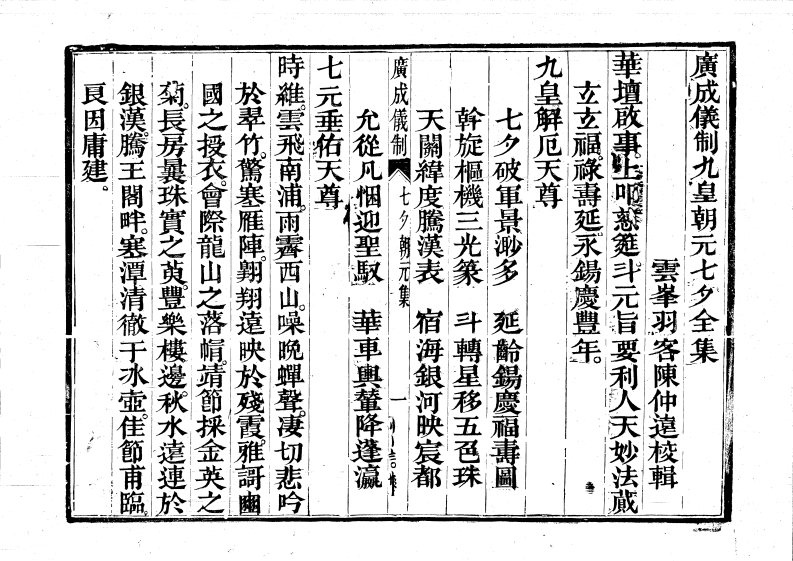 廣成儀制九皇朝元七夕全集
雲峯羽客陳仲遠校輯
華壇啟事上叩慈筵斗元旨要利人天妙法藏
玄玄福祿壽延永錫慶豐年
九皇解厄天尊
七夕破軍景渺多　延齡錫慶福壽圖
斡旋樞機三光篆　斗轉星移五色珠
天關緯度騰漢表　宿海銀河映宸都
廣成儀制　七夕朝元集　一
允從凡悃迎聖馭　華車輿輦降蓬瀛
七元垂佑天尊
時維。雲飛南浦。雨霽西山。噪晚蟬聲。淒切悲吟
於翠竹。驚塞雁陣。翺翔遠映於殘霞。雅謌豳
國之授衣。會際龍山之落帽。靖節採金英之
菊。長房曩珠實之萸。豐樂樓邊。秋水遠連於
銀漢。騰王閣畔。寒潭清徹于氷壺。佳節甫臨。
良因庸建。